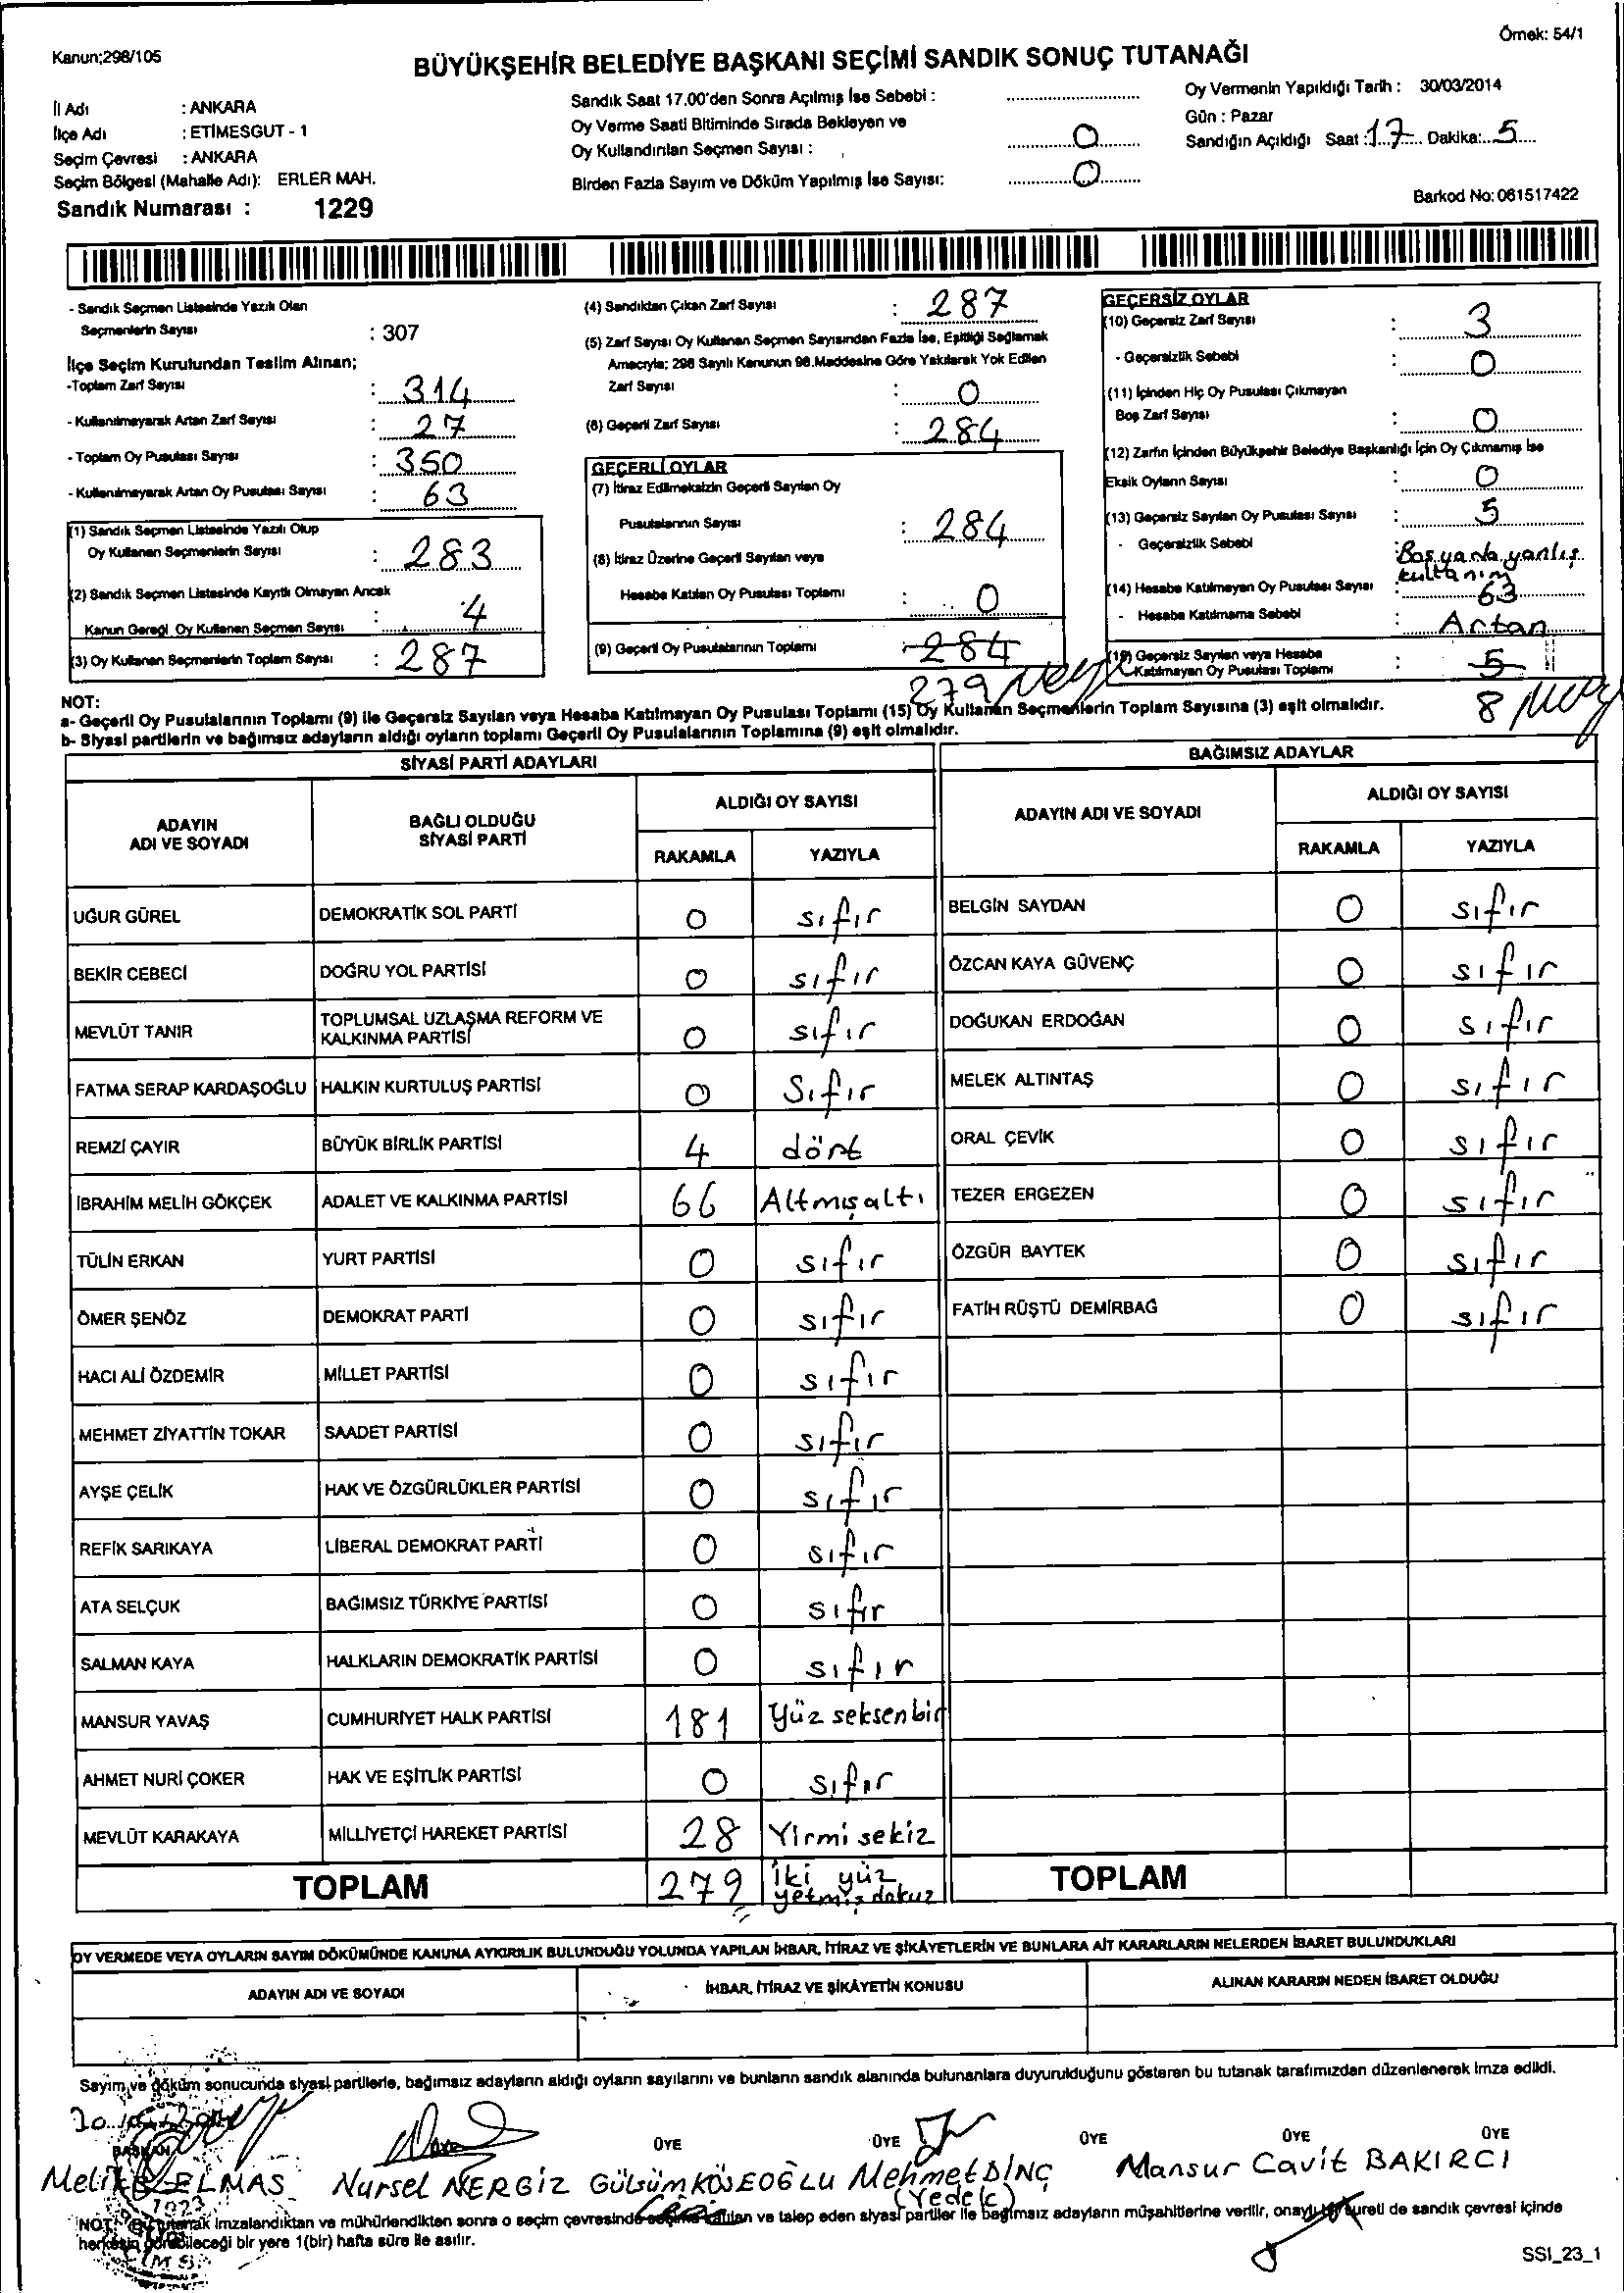 Kanun;298/105
Örnek: 54/1
BÜYÜKŞEHİR BELEDİYE BAŞKANI SEÇİMİ SANDIK SONUÇ TUTANAĞI
İl Adı : ANKARA
İlçe Adı : ETİMESGUT - 1
Seçim Çevresi : ANKARA
Seçim Bölgesi (Mahalle Adı): ERLER MAH.
Sandık Numarası : 1229
Sandık Saat 17.00'den Sonra Açılmış İse Sebebi :
Oy Verme Saati Bitiminde Sırada Bekleyen ve
Oy Kullandırılan Seçmen Sayısı : 0
Birden Fazla Sayım ve Döküm Yapılmış İse Sayısı: 0
Oy Vermenin Yapıldığı Tarih : 30/03/2014
Gün : Pazar
Sandığın Açıldığı Saat : 17 Dakika: 5
Barkod No: 061517422
- Sandık Seçmen Listesinde Yazılı Olan
Seçmenlerin Sayısı : 307
İlçe Seçim Kurulundan Teslim Alınan;
-Toplam Zarf Sayısı : 314
- Kullanılmayarak Artan Zarf Sayısı : 27
- Toplam Oy Pusulası Sayısı : 350
- Kullanılmayarak Artan Oy Pusulası Sayısı : 63
(1) Sandık Seçmen Listesinde Yazılı Olup
Oy Kullanan Seçmenlerin Sayısı : 283
(2) Sandık Seçmen Listesinde Kayıtlı Olmayan Ancak
Kanun Gereği Oy Kullanan Seçmen Sayısı : 4
(3) Oy Kullanan Seçmenlerin Toplam Sayısı : 287
(4) Sandıktan Çıkan Zarf Sayısı : 287
(5) Zarf Sayısı Oy Kullanan Seçmen Sayısından Fazla İse, Eşitliği Sağlamak
Amacıyla; 298 Sayılı Kanunun 98.Maddesine Göre Yakılarak Yok Edilen
Zarf Sayısı : 0
(6) Geçerli Zarf Sayısı : 284
GEÇERLİ OYLAR
(7) İtiraz Edilmeksizin Geçerli Sayılan Oy
Pusulalarının Sayısı : 284
(8) İtiraz Üzerine Geçerli Sayılan veya
Hesaba Katılan Oy Pusulası Toplamı : 0
(9) Geçerli Oy Pusulalarının Toplamı : 284
279
GEÇERSİZ OYLAR
(10) Geçersiz Zarf Sayısı : 3
- Geçersizlik Sebebi : 0
(11) İçinden Hiç Oy Pusulası Çıkmayan
Boş Zarf Sayısı : 0
(12) Zarfın İçinden Büyükşehir Belediye Başkanlığı İçin Oy Çıkmamış İse
Eksik Oyların Sayısı : 0
(13) Geçersiz Sayılan Oy Pusulası Sayısı : 5
- Geçersizlik Sebebi : Boş yada yanlış
kullanım
(14) Hesaba Katılmayan Oy Pusulası Sayısı : 63
- Hesaba Katılmama Sebebi : Artan
(15) Geçersiz Sayılan veya Hesaba
Katılmayan Oy Pusulası Toplamı : 5
8
NOT:
a- Geçerli Oy Pusulalarının Toplamı (9) ile Geçersiz Sayılan veya Hesaba Katılmayan Oy Pusulası Toplamı (15) Oy Kullanan Seçmenlerin Toplam Sayısına (3) eşit olmalıdır.
b- Siyasi partilerin ve bağımsız adayların aldığı oyların toplamı Geçerli Oy Pusulalarının Toplamına (9) eşit olmalıdır.
SİYASİ PARTİ ADAYLARI
ADAYIN ADI VE SOYADI BAĞLI OLDUĞU SİYASİ PARTİ ALDIĞI OY SAYISI
RAKAMLA YAZIYLA
UĞUR GÜREL DEMOKRATİK SOL PARTİ 0 sıfır
BEKİR CEBECİ DOĞRU YOL PARTİSİ 0 sıfır
MEVLÜT TANIR TOPLUMSAL UZLAŞMA REFORM VE KALKINMA PARTİSİ 0 sıfır
FATMA SERAP KARDAŞOĞLU HALKIN KURTULUŞ PARTİSİ 0 Sıfır
REMZİ ÇAYIR BÜYÜK BİRLİK PARTİSİ 4 dört
İBRAHİM MELİH GÖKÇEK ADALET VE KALKINMA PARTİSİ 66 Altmışaltı
TÜLİN ERKAN YURT PARTİSİ 0 sıfır
ÖMER ŞENÖZ DEMOKRAT PARTİ 0 sıfır
HACI ALİ ÖZDEMİR MİLLET PARTİSİ 0 sıfır
MEHMET ZİYATTİN TOKAR SAADET PARTİSİ 0 sıfır
AYŞE ÇELİK HAK VE ÖZGÜRLÜKLER PARTİSİ 0 sıfır
REFİK SARIKAYA LİBERAL DEMOKRAT PARTİ 0 sıfır
ATA SELÇUK BAĞIMSIZ TÜRKİYE PARTİSİ 0 sıfır
SALMAN KAYA HALKLARIN DEMOKRATİK PARTİSİ 0 sıfır
MANSUR YAVAŞ CUMHURİYET HALK PARTİSİ 181 Yüz seksenbir
AHMET NURİ ÇOKER HAK VE EŞİTLİK PARTİSİ 0 sıfır
MEVLÜT KARAKAYA MİLLİYETÇİ HAREKET PARTİSİ 28 Yirmi sekiz
TOPLAM 279 İki yüz
yetmiş dokuz
BAĞIMSIZ ADAYLAR
ADAYIN ADI VE SOYADI ALDIĞI OY SAYISI
RAKAMLA YAZIYLA
BELGİN SAYDAN 0 sıfır
ÖZCAN KAYA GÜVENÇ 0 sıfır
DOĞUKAN ERDOĞAN 0 sıfır
MELEK ALTINTAŞ 0 sıfır
ORAL ÇEVİK 0 sıfır
TEZER ERGEZEN 0 sıfır
ÖZGÜR BAYTEK 0 sıfır
FATİH RÜŞTÜ DEMİRBAĞ 0 sıfır
TOPLAM
OY VERMEDE VEYA OYLARIN SAYIM DÖKÜMÜNDE KANUNA AYKIRILIK BULUNDUĞU YOLUNDA YAPILAN İHBAR, İTİRAZ VE ŞİKÂYETLERİN VE BUNLARA AİT KARARLARIN NELERDEN İBARET BULUNDUKLARI
ADAYIN ADI VE SOYADI İHBAR, İTİRAZ VE ŞİKÂYETİN KONUSU ALINAN KARARIN NEDEN İBARET OLDUĞU
Sayım ve döküm sonucunda siyasi partilerle, bağımsız adayların aldığı oyların sayılarını ve bunların sandık alanında bulunanlara duyurulduğunu gösteren bu tutanak tarafımızdan düzenlenerek imza edildi.
BAŞKAN ÜYE ÜYE ÜYE ÜYE ÜYE
Melike ELMAS Nursel NERGİZ Gülsüm KÖSEOĞLU Mehmet DİNÇ Mansur Cavit BAKIRCI
(Yedek)
NOT: Bu tutanak imzalandıktan ve mühürlendikten sonra o seçim çevresinde seçime katılan ve talep eden siyasi partiler ile bağımsız adayların müşahitlerine verilir, onaylı bir sureti de sandık çevresi içinde
herkesin görebileceği bir yere 1(bir) hafta süre ile asılır.
SSI_23_1